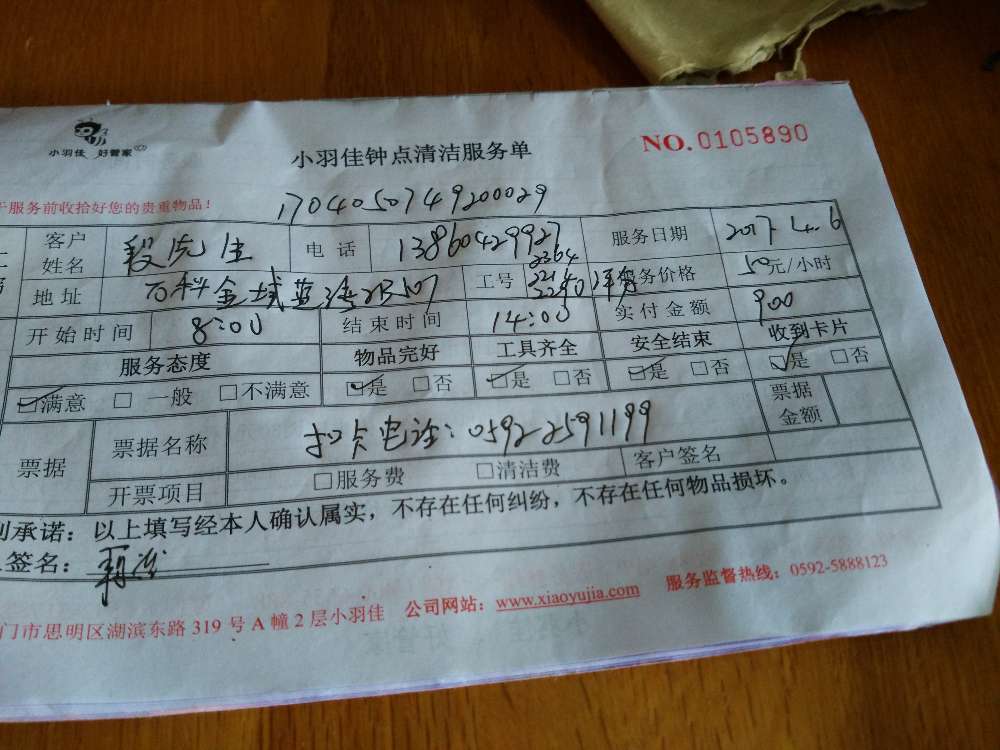 小羽佳 好管家
小羽佳钟点清洁服务单
NO.0105890
服务前收拾好您的贵重物品!
1704050749200029
客户姓名 段先生 电话 13860429927 服务日期 2017.4.6
地址 万科金域蓝湾 507 工号 2364 2214 2240 服务价格 50元/小时
开始时间 8:00 结束时间 14:00 实付金额 900
服务态度 物品完好 工具齐全 安全结束 收到卡片
☑满意 □一般 □不满意 ☑是 □否 ☑是 □否 ☑是 □否 ☑是 □否
票据 票据名称 扣卡电话:0592 2591199 票据金额
开票项目 □服务费 □清洁费 客户签名
承诺:以上填写经本人确认属实,不存在任何纠纷,不存在任何物品损坏。
签名:
门市思明区湖滨东路 319 号 A 幢 2 层小羽佳 公司网站:www.xiaoyujia.com 服务监督热线:0592-5888123